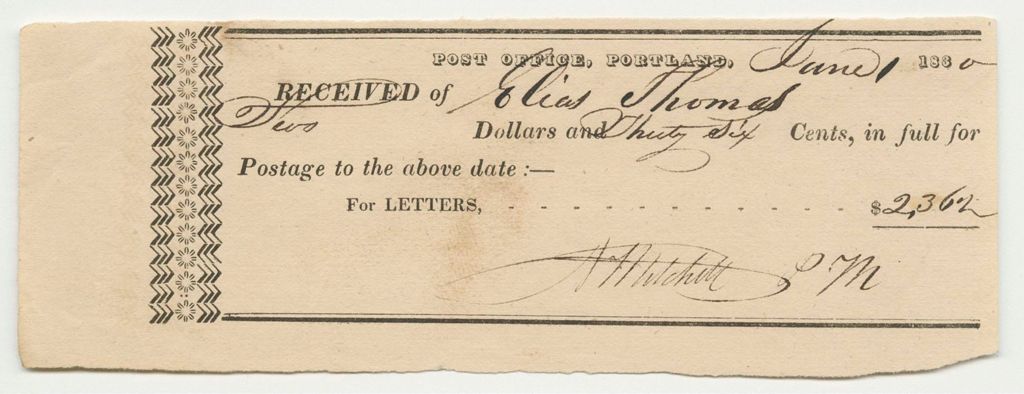 POST OFFICE, PORTLAND, June 1 1830
RECEIVED of Elias Thomas
Two Dollars and Thirty Six Cents, in full for
Postage to the above date :—
For LETTERS, - - - - - - - - - - - - - $2,36½
N Mitchell P M